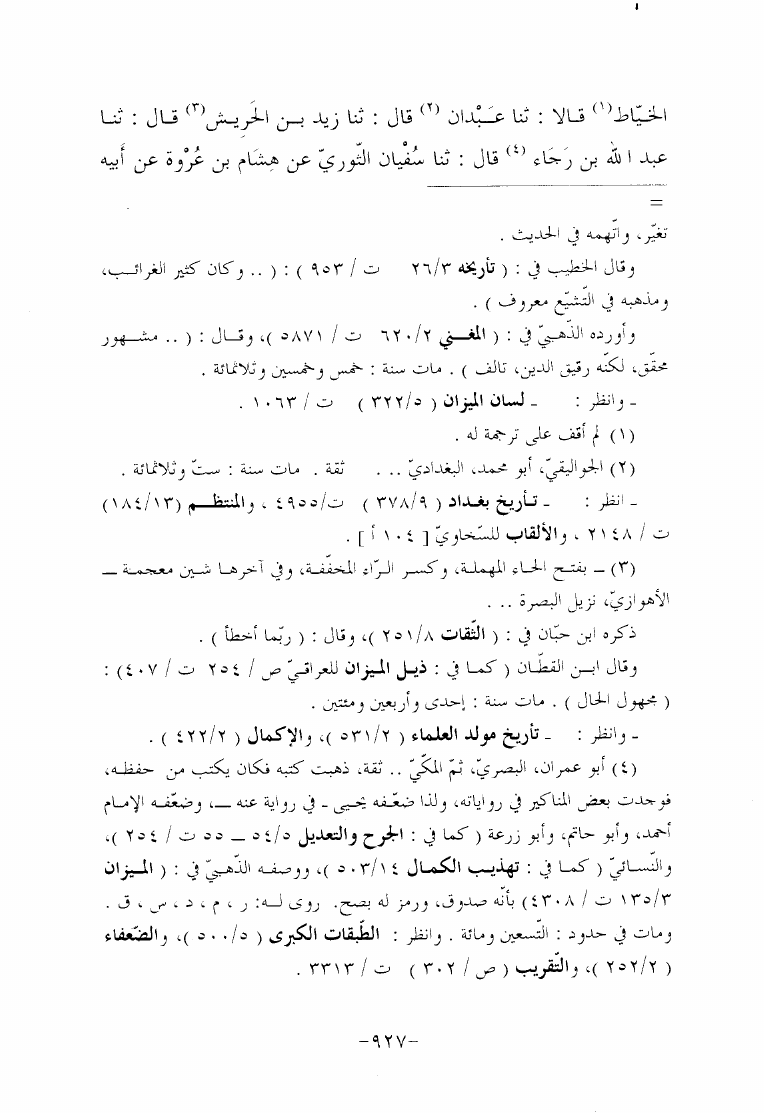 الخيّاط(١) قالا : ثنا عَبْدان (٢) قال : ثنا زيد بن الحَرِيش(٣) قال : ثنا
عبد الله بن رَجَاء (٤) قال : ثنا سُفْيان الثّوريّ عن هِشَام بن عُرْوة عن أبيه
=
تغيّر، واتّهمه في الحديث .
وقال الخطيب في : ( تأريخه ٢٦/٣ ت / ٩٥٣ ) : ( .. وكان كثير الغرائب،
ومذهبه في التّشيّع معروف ) .
وأورده الذّهبيّ في : ( المغني ٦٢٠/٢ ت / ٥٨٧١ )، وقال : ( .. مشهور
محقّق، لكنّه رقيق الدين، تالف ) . مات سنة : خمس وخمسين وثلاثمائة .
ـ وانظر : ـ لسان الميزان ( ٣٢٢/٥ ) ت / ١٠٦٣ .
(١) لم أقف على ترجمة له .
(٢) الجواليقيّ، أبو محمد، البغداديّ ... ثقة . مات سنة : ستّ وثلاثمائة .
ـ انظر : ـ تأريخ بغداد ( ٣٧٨/٩ ) ت/٤٩٥٥ ، والمنتظم (١٨٤/١٣)
ت / ٢١٤٨ ، والألقاب للسّخاويّ [ ١٠٤ أ ] .
(٣) ـ بفتح الحاء المهملة، وكسر الرّاء المخفّفة، وفي آخرها شين معجمة ـ
الأهوازيّ، نزيل البصرة ...
ذكره ابن حبّان في : ( الثّقات ٢٥١/٨ )، وقال : ( ربّما أخطأ ) .
وقال ابن القطّان ( كما في : ذيل الميزان للعراقيّ ص / ٢٥٤ ت / ٤٠٧) :
( مجهول الحال ) . مات سنة : إحدى وأربعين ومئتين .
ـ وانظر : ـ تأريخ مولد العلماء ( ٥٣١/٢ )، والإكمال ( ٤٢٢/٢ ) .
(٤) أبو عمران، البصريّ، ثمّ المكّيّ .. ثقة، ذهبت كتبه فكان يكتب من حفظه،
فوجدت بعض المناكير في رواياته، ولذا ضعّفه يحيى ـ في رواية عنه ـ، وضعّفه الإمام
أحمد، وأبو حاتم، وأبو زرعة ( كما في : الجرح والتعديل ٥٤/٥ ـ ٥٥ ت / ٢٥٤ )،
والنّسائيّ ( كما في : تهذيب الكمال ٥٠٣/١٤ )، ووصفه الذّهبيّ في : ( الميزان
١٣٥/٣ ت / ٤٣٠٨) بأنّه صدوق، ورمز له بصح. روى له: ر ، م ، د ، س ، ق .
ومات في حدود : التّسعين ومائة . وانظر : الطّبقات الكبرى ( ٥٠٠/٥ )، والضّعفاء
( ٢٥٢/٢ )، والتّقريب ( ص / ٣٠٢ ) ت / ٣٣١٣ .
-٩٢٧-